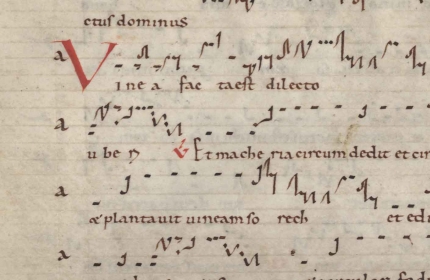 ctus dominus
a Vine a fac taest dilecto
a u be ry V Et mache ria circum dedit et cir
a & plantavit vineam so rech et edi
a